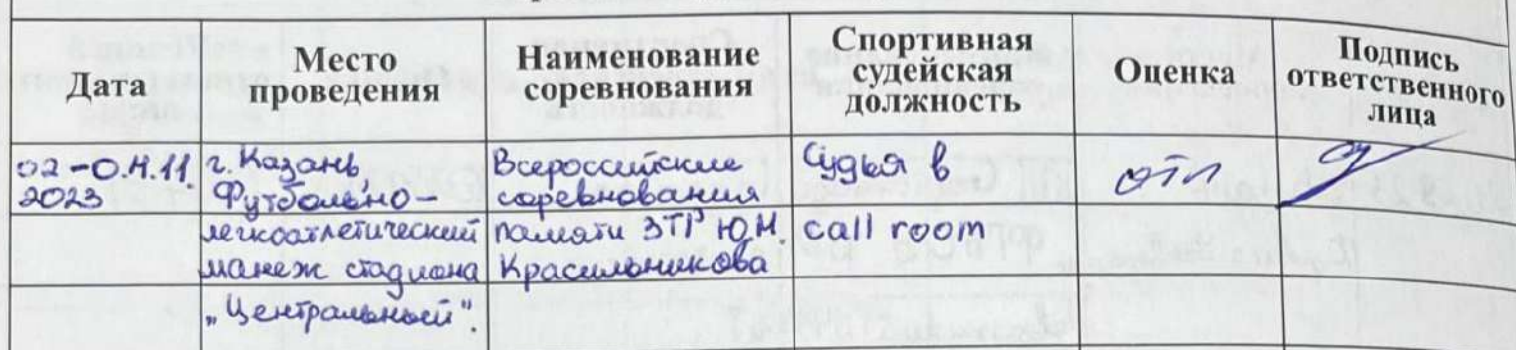 Дата
Место
проведения
Наименование
соревнования
Спортивная
судейская
должность
Оценка
Подпись
ответственного
лица
02-04.11.
2023
г. Казань,
Футбольно-
легкоатлетический
манеж стадиона
„Центральный".
Всероссийские
соревнования
памяти ЗТР Ю.Н.
Красильникова
Судья в
call room
отл